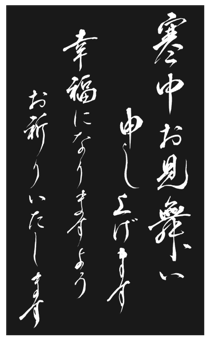 寒中お見舞い
申し上げます
幸福になりますよう
お祈りいたします